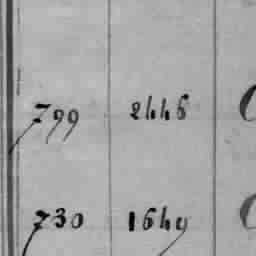 799 2446
730 1649